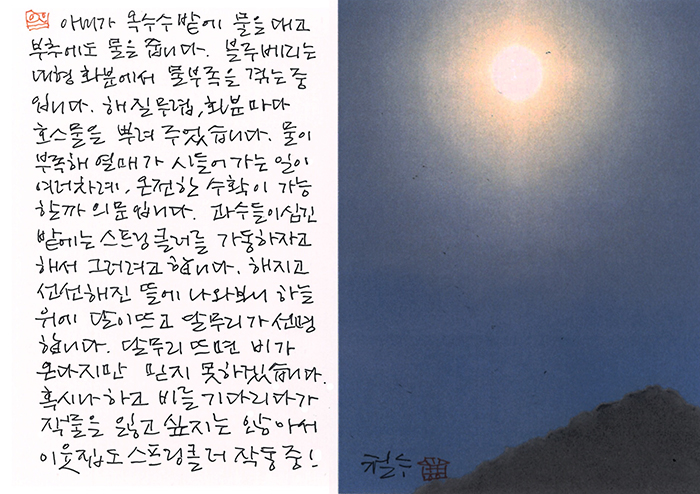 아내가 옥수수밭에 물을 대고
부추에도 물을 줍니다. 블루베리는
대형 화분에서 물부족을 겪는 중
입니다. 해질무렵, 화분마다
호스물을 뿌려 주었습니다. 물이
부족해 열매가 시들어가는 일이
여러차례, 온전한 수확이 가능
할까 의문입니다. 과수들이 심긴
밭에는 스프링클러를 가동하자고
해서 그러려고 합니다. 해지고
선선해진 뜰에 나와보니 하늘
위에 달이 뜨고 달무리가 선명
합니다. 달무리 뜨면 비가
온다지만 믿지 못하겠습니다.
혹시나 하고 비를 기다리다가
작물을 잃고 싶지는 않아서
이웃집도 스프링클러 작동 중!
철수